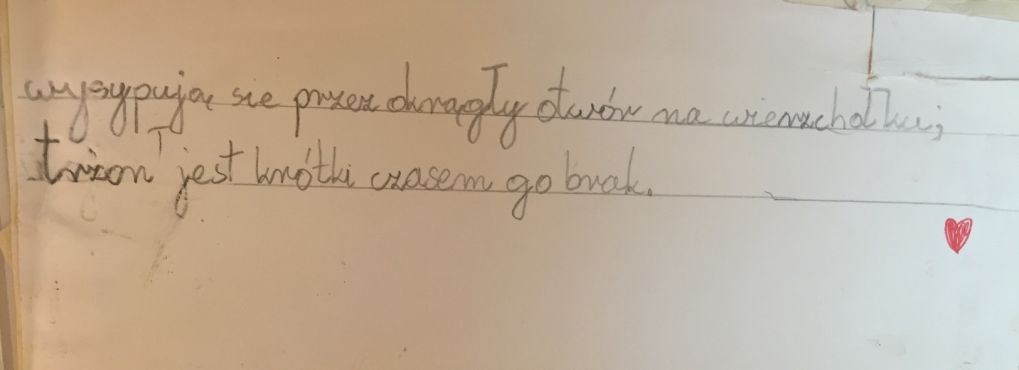 wysypując się przez okrągły otwór na wierzchołku;
trzon jest krótki czasem go brak.